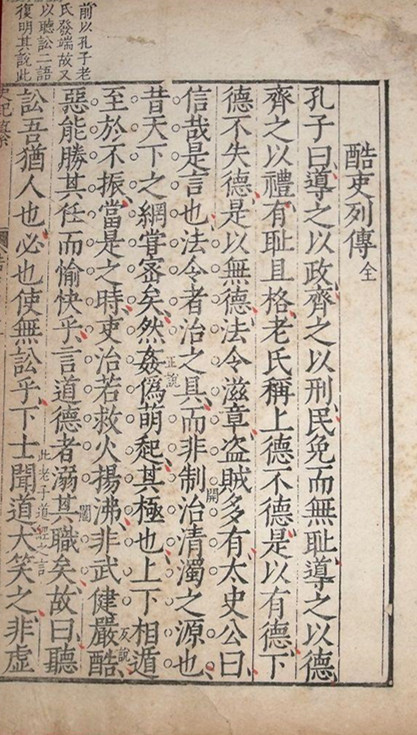 前以孔子老
氏發端故又
以聽訟二語
復明其說此
酷吏列傳全
孔子曰導之以政齊之以刑民免而無耻導之以德
齊之以禮有耻且格老氏稱上德不德是以有德下
德不失德是以無德法令滋章盗賊多有太史公曰
開
信哉是言也法令者治之具而非制治清濁之源也
正說
昔天下之網嘗宻矣然姦偽萌起其極也上下相遁
反說
至於不振當是之時吏治若救火揚沸非武健嚴酷
闔
惡能勝其任而愉快乎言道德者溺其職矣故曰聽
此老子道經之言
訟吾猶人也必也使無訟乎下士聞道大笑之非虚